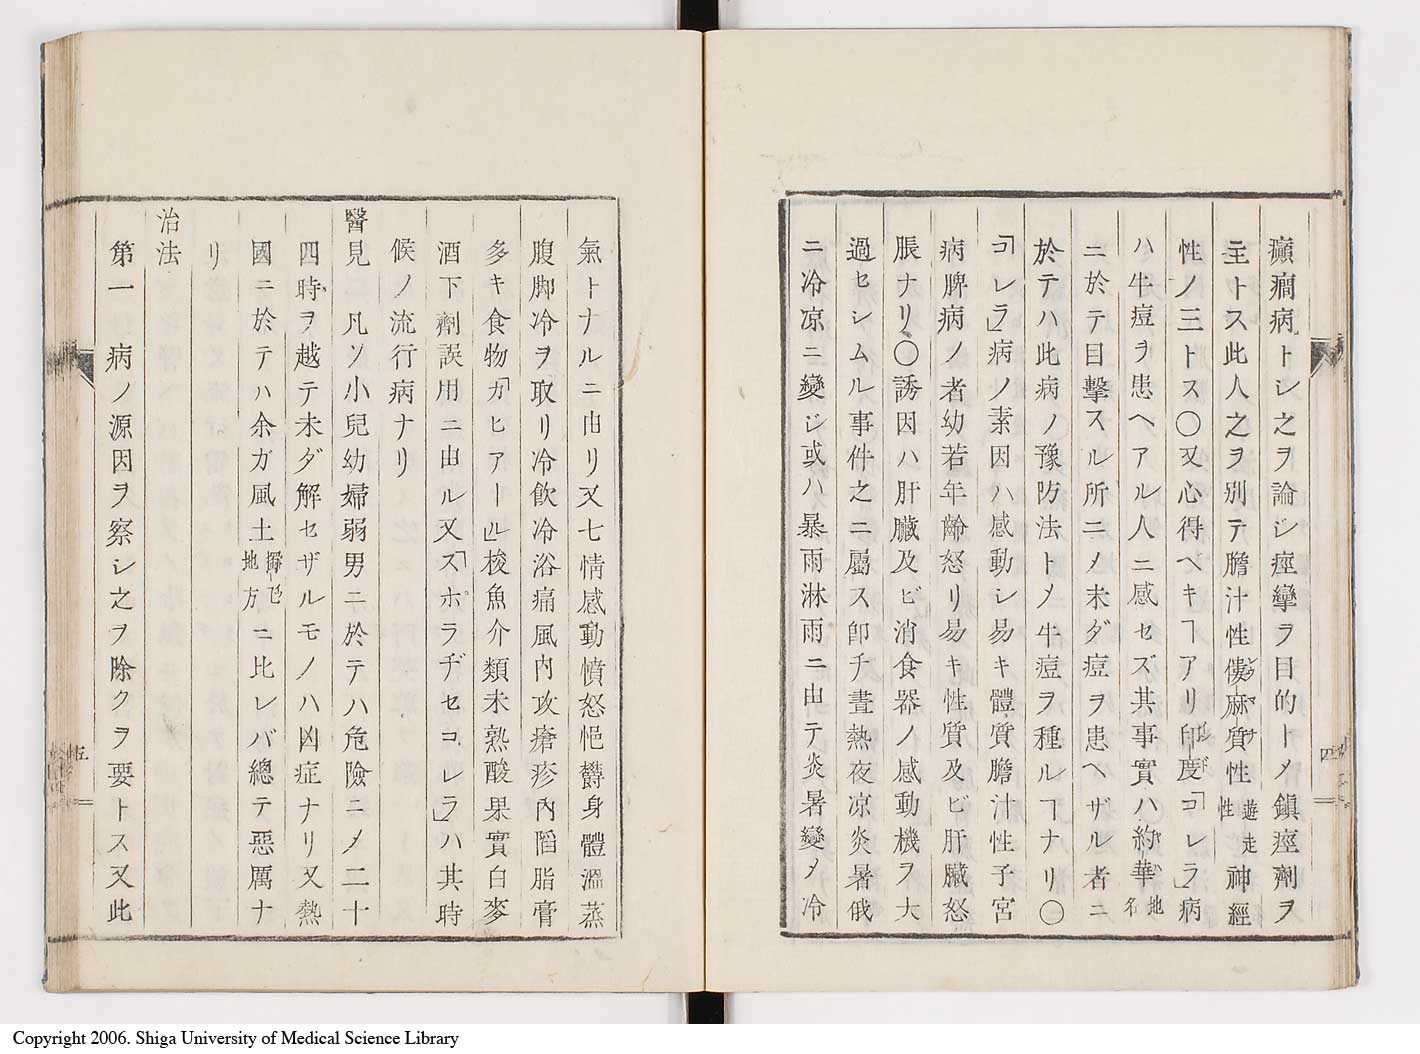 癲癇病トシ之ヲ論ジ痙攣ヲ目的トメ鎭痙劑ヲ
主トス此人之ヲ別テ膽汁性僂麻質性遊走性神經
性ノ三トス〇又心得ベキヿアリ印度「コレラ」病
ハ牛痘ヲ患ヘアル人ニ感セズ其事實ハ約華地名
ニ於テ目擊スル所ニメ未ダ痘ヲ患ヘザル者ニ
於テハ此病ノ豫防法トメ牛痘ヲ種ルヿナリ〇
「コレラ」病ノ素因ハ感動シ易キ體質膽汁性子宮
病脾病ノ者幼若年齡怒リ易キ性質及ビ肝臟怒
脹ナリ〇誘因ハ肝臟及ビ消食器ノ感動機ヲ大
過セシムル事件之ニ屬ス卽チ晝熱夜凉炎暑俄
ニ冷凉ニ變ジ或ハ暴雨淋雨ニ由テ炎暑變メ冷
氣トナルニ由リ又七情感動憤怒悒欝身體溫蒸
腹脚冷ヲ取リ冷飮冷浴痛風內攻瘡疹內陷脂膏
多キ食物「カヒアール」梭魚介類未熟酸果實白麥
酒下劑誤用ニ由ル又「スポラヂセコレラ」ハ其時
候ノ流行病ナリ
醫見二 凡ソ小兒幼婦弱男ニ於テハ危險ニメ二十
四時ヲ越テ未ダ解セザルモノハ凶症ナリ又熱
國ニ於テハ余ガ風土地方ニ比レバ總テ惡厲ナ
リ
治法
第一 病ノ源因ヲ察シ之ヲ除クヲ要トス又此
Copyright 2006. Shiga University of Medical Science Library